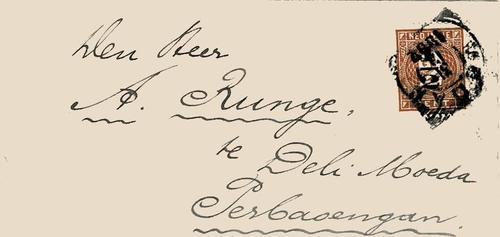 Den Heer
A. Runge,
te Deli Moeda
Perbaoengan.